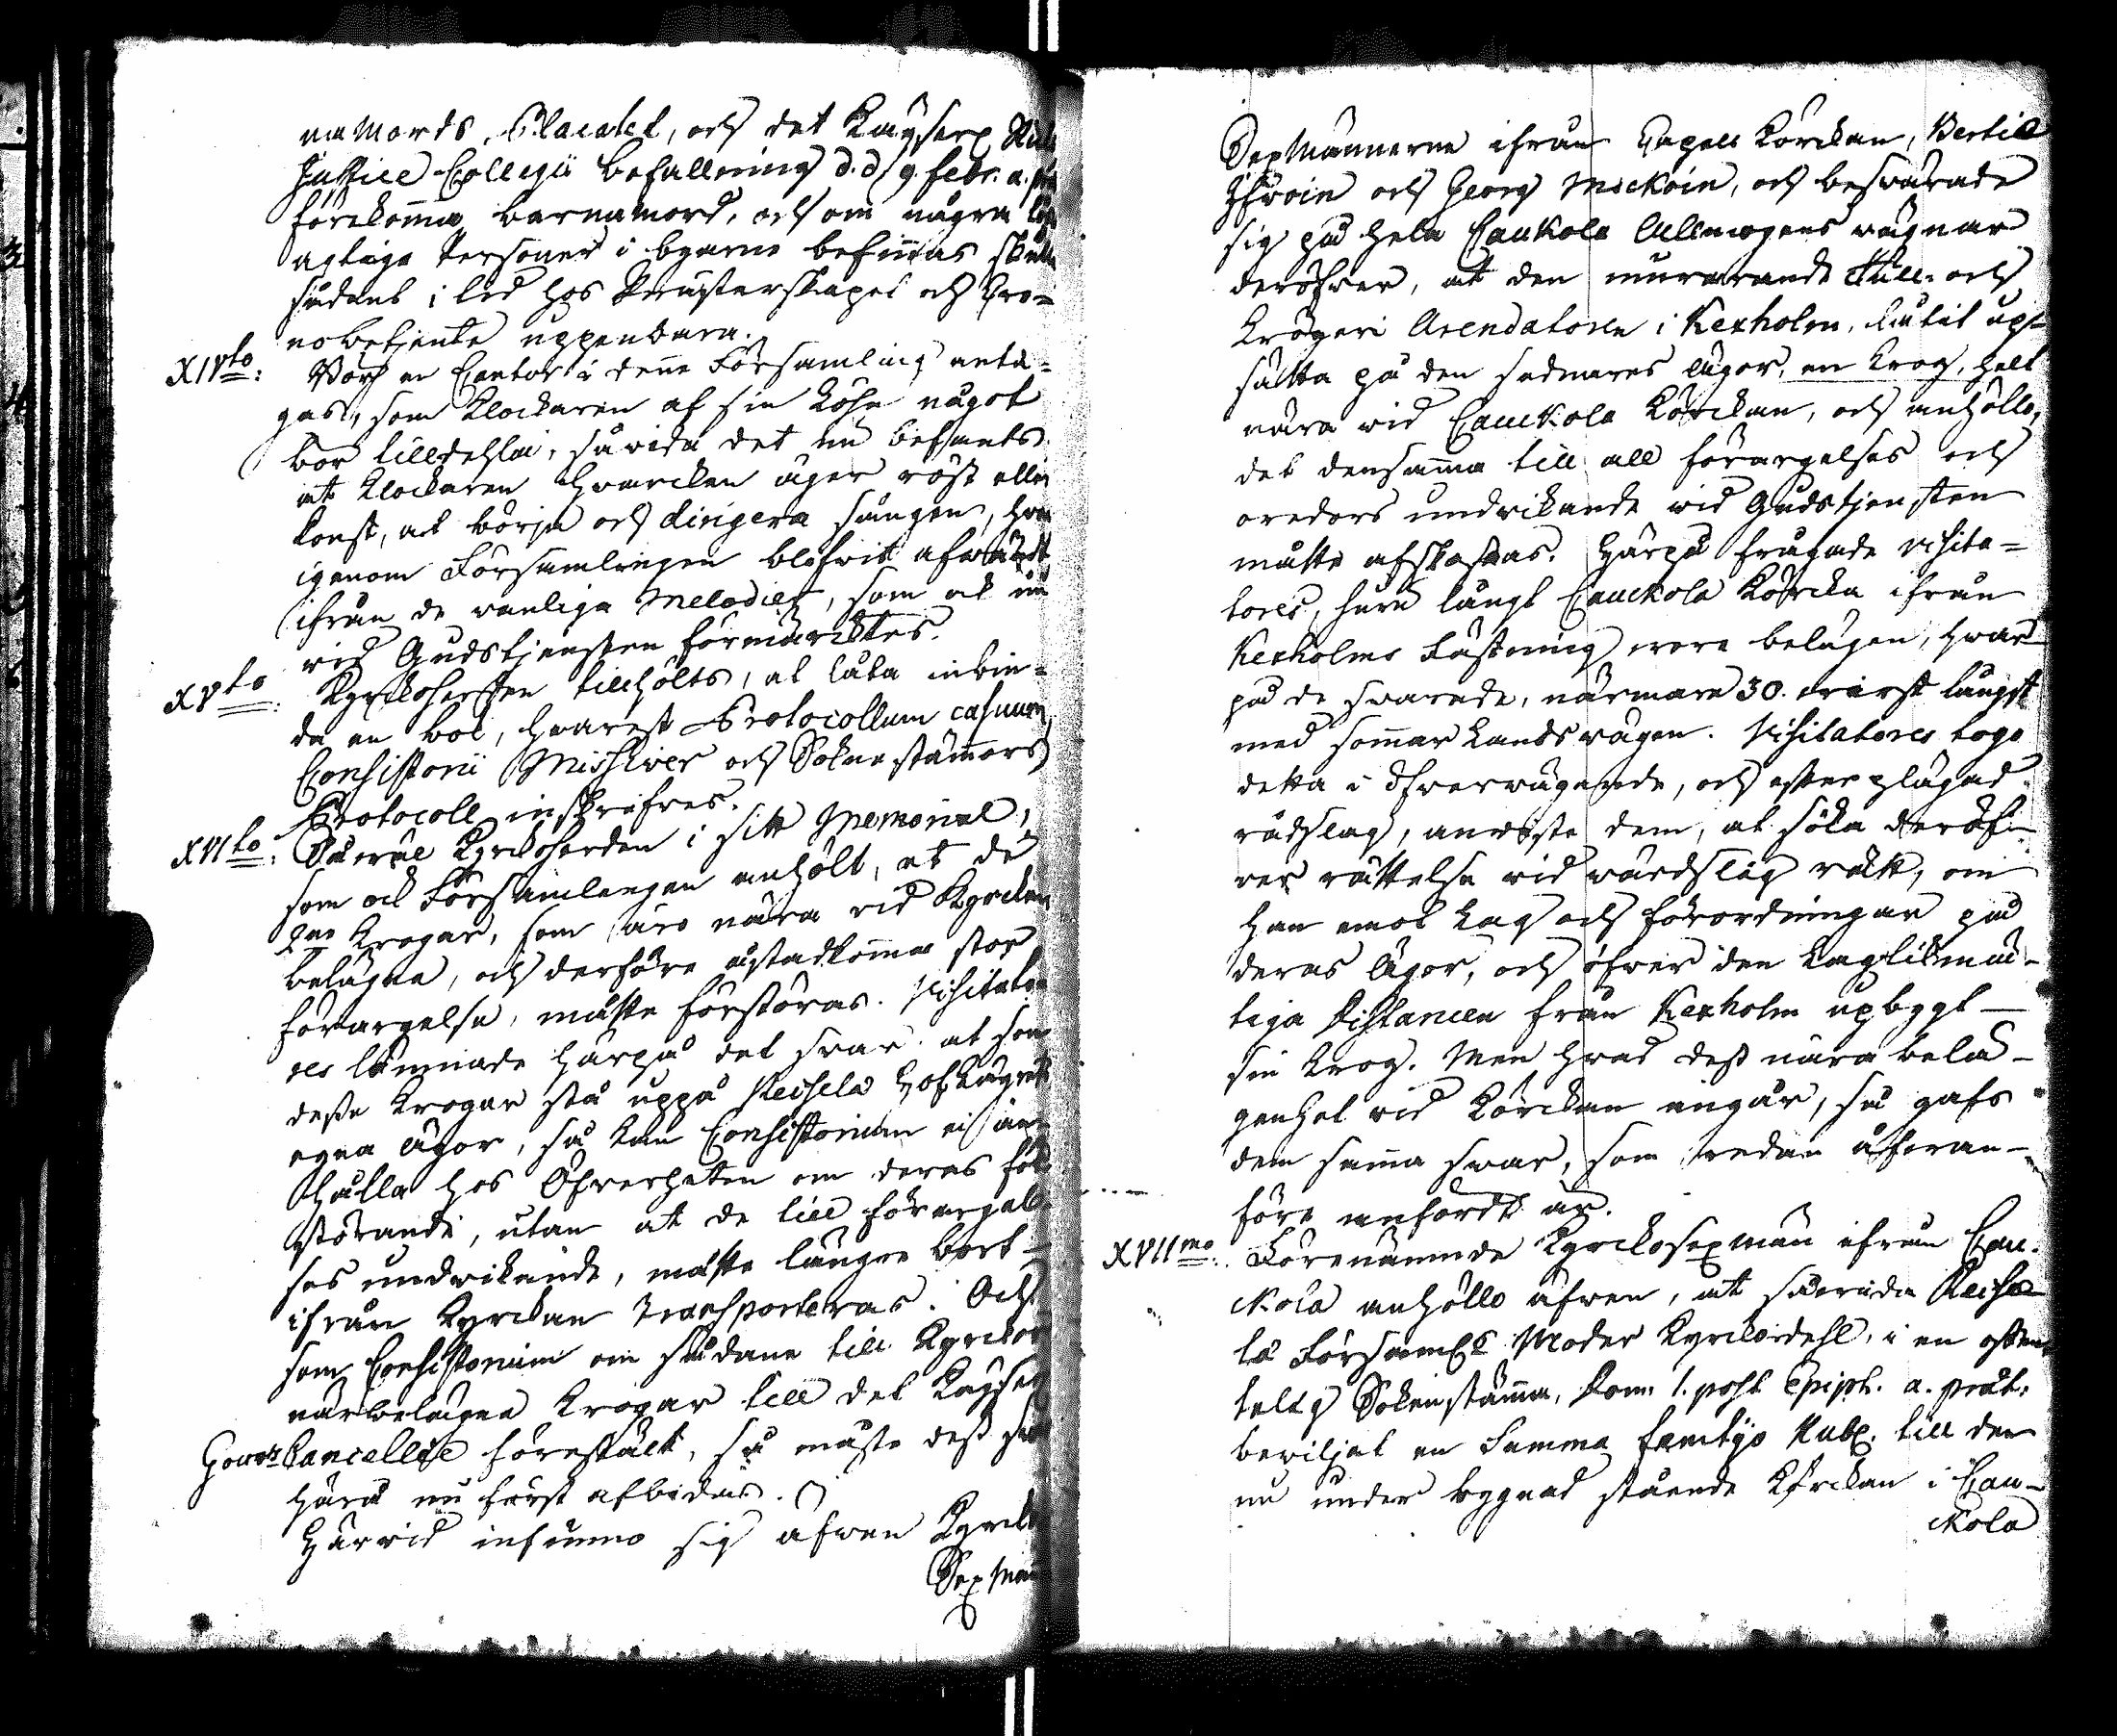 na Mords Placatet, och det Kayserl
Justice Collegii befallning d. d. 9. febr. a. pr.
förekomma barnamord, och om några
agtige Personer i byarne befinnas skulle
sådant i tid hos Prästerskapet och Cro=
nobetjente uppenbara.
XIVto: Bör en Cantor i denne Församling anta=
gas, som Klockaren af sin Löhn något
bör tilldehla, såvida det nu befants
at Klockaren hvarcken äger röst eller
konst, at börja och dirigera sången, hvar
igenom Församlingen blifwit afwändt
ifrån de vanliga Melodier, som ock nu
vid Gudstjensten förmärcktes.
XVto: Kyrckoherden tillhölts, at låta inbin=
da en bok, hvarest Protocollum casuum
Consistorii Missiver och Sokne stämmors
Protocoll inskrifves.
XVIto: Såväl Kyrckoherden i sitt Memorial,
som ock Församlingen anhölt, at de
2ne Krogar, som äro nära vid Kyrckan
belägne, och derföre åstadkomma stor
förargelse, måtte förstöras. Visitato
res lämnade härpå det svar: at som
desse Krogar stå uppå Reisela Hof Lägrets
egna ägor, så kan Consistorium ei an
hålla hos Öfverheten om deras för
störande, utan at de till förargel
ses undvikande, måtte längre bort=
ifrån Kyrckan transporteras. Och
som Consistorium om sådane till Kyrckor
närbelägne Krogar till det Kayserl
Gouvts Cancelliet föreställt, så måste dess svar
härå nu först afbidas.
Härvid infunno sig äfwen Kyrcko
Sex Män
Sexmännerne ifrån Capell Körckan, Bertil
Ihvoin och Georg Mickoin, och besvärade
sig på hela Caukola Allmogens vägnar
deröfver, at den nuvarande Tull= och
Krögeri Arendatoren i Kexholm, låtit up=
sätta på den sednares ägor, en Krog, helt
nära vid Cauckola Körckan, och anhöllo,
det densamma till all förargelses och
oredors undvikande vid Gudstjensten
måtte afskaffas. Härpå frågade visita=
tores, huru långt Cauckola Körcka ifrån
Kexholms Fästning vore belägen, hvar
på de svarade, närmare 30. wirst längst
med sommar Landsvägen. Visitatores togo
detta i öfvervägande, och efter plägad
rådslag, anviste dem, at söka deröf=
ver rättelse vid värdslig rätt, om
han emot Lag och förordningar på
deras ägor, och öfver den Laglikmä=
tiga distancen från Kexholm upbygt
sin Krog. Men hvad dess nära belä=
genhet vid Körckan angår, så gafs
dem samma svar, som redan åfvan=
före anfördt är.
XVIImo: Förenämnde Kyrckosexmän ifrån Cau=
ckola anhöllo äfwen, at såvida Reise
lä Församls Moder Kyrckodehl, i en
Sokenstämma, Dom. 1. post Epiph. a. præt.
beviljat en Summa Rubl. till den
nu under bygnad stående Körckan i Cau=
ckola